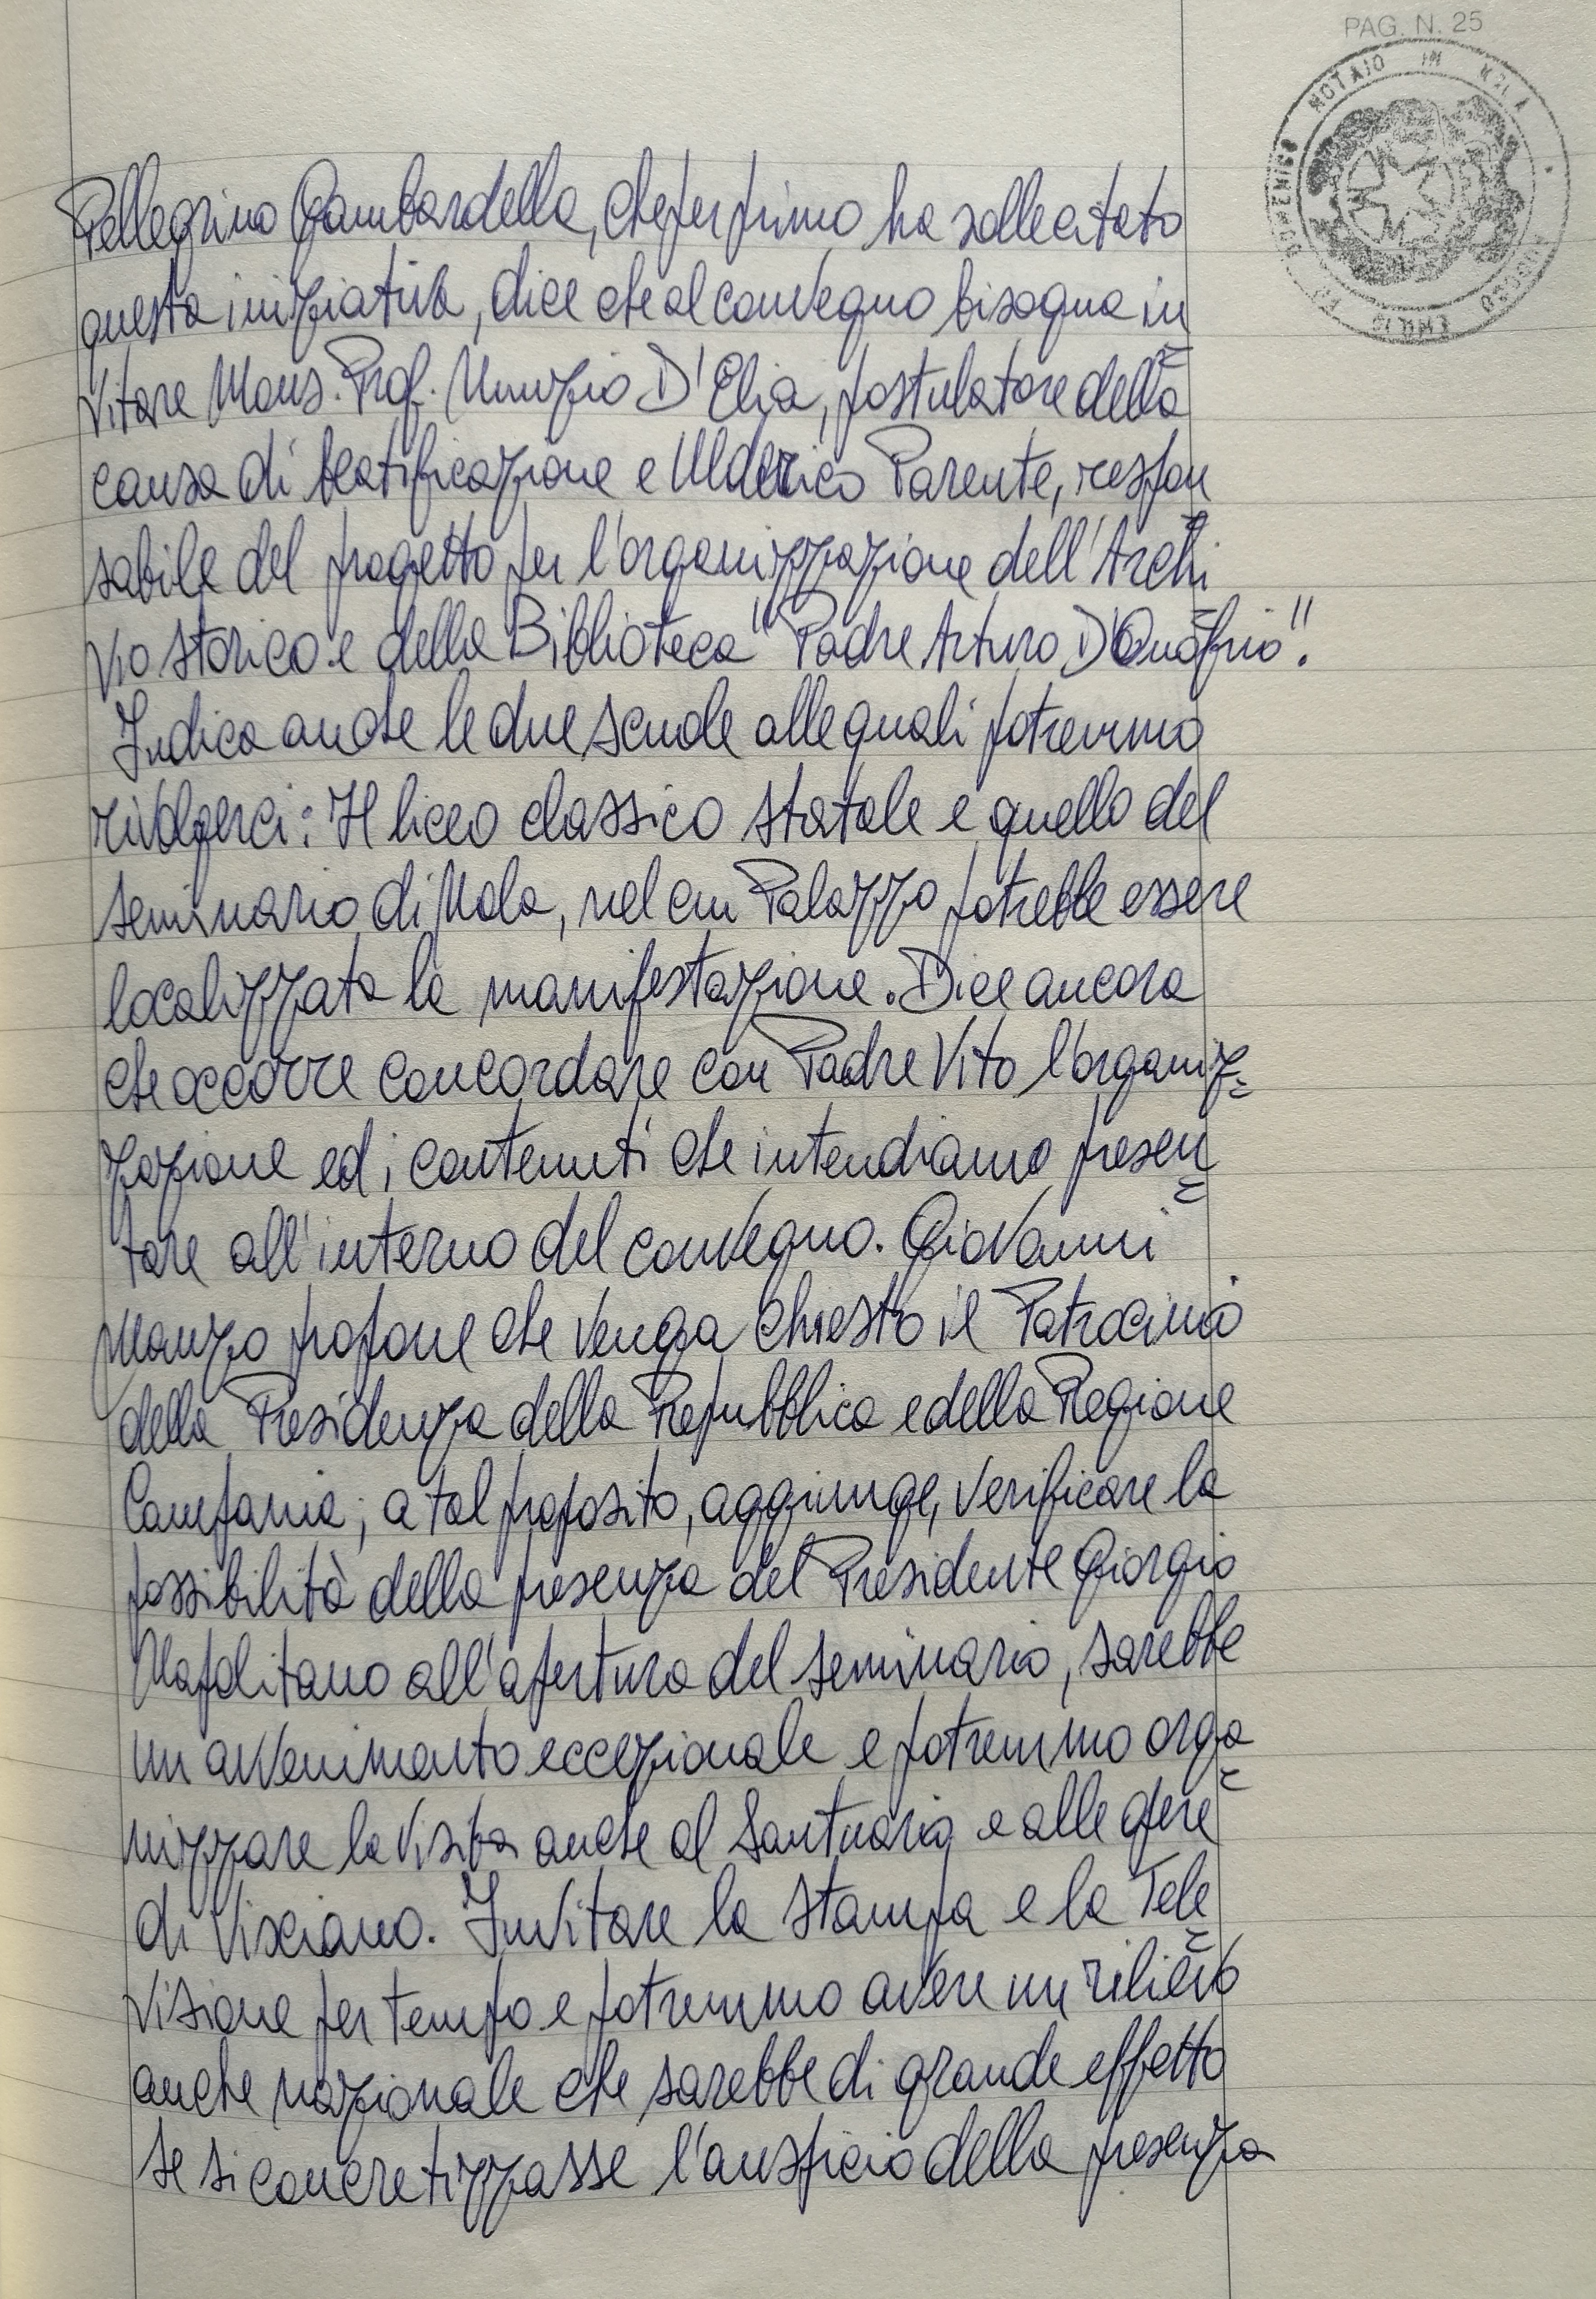 PAG. N. 25
NOTAIO IN NOLA
Pellegrino Gambardella, che per primo ha sollecitato
questa iniziativa, dice che al convegno bisogna in
vitare Mons. Prof. Nunzio D'Elia, postulatore della
causa di beatificazione e Ulderico Parente, respon
sabile del progetto per l'organizzazione dell'Archi
vio storico e della Biblioteca "Padre Arturo D'Onofrio".
Indica anche le due scuole alle quali potremmo
rivolgerci: Il liceo classico statale e quello del
seminario di Nola, nel cui Palazzo potrebbe essere
localizzata la manifestazione. Dice ancora
che occorre concordare con Padre Vito l'organiz=
zazione ed i contenuti che intendiamo presen=
tare all'interno del convegno. Giovanni
Manzo propone che venga chiesto il Patrocinio
della Presidenza della Repubblica e della Regione
Campania; a tal proposito, aggiunge, verificare la
possibilità della presenza del Presidente Giorgio
Napolitano all'apertura del seminario, sarebbe
un avvenimento eccezionale e potremmo orga=
nizzare la visita anche al Santuario e alle opere
di Visciano. Invitare la stampa e la Tele=
visione per tempo e potremmo avere un rilievo
anche nazionale che sarebbe di grande effetto
se si concretizzasse l'auspicio della presenza